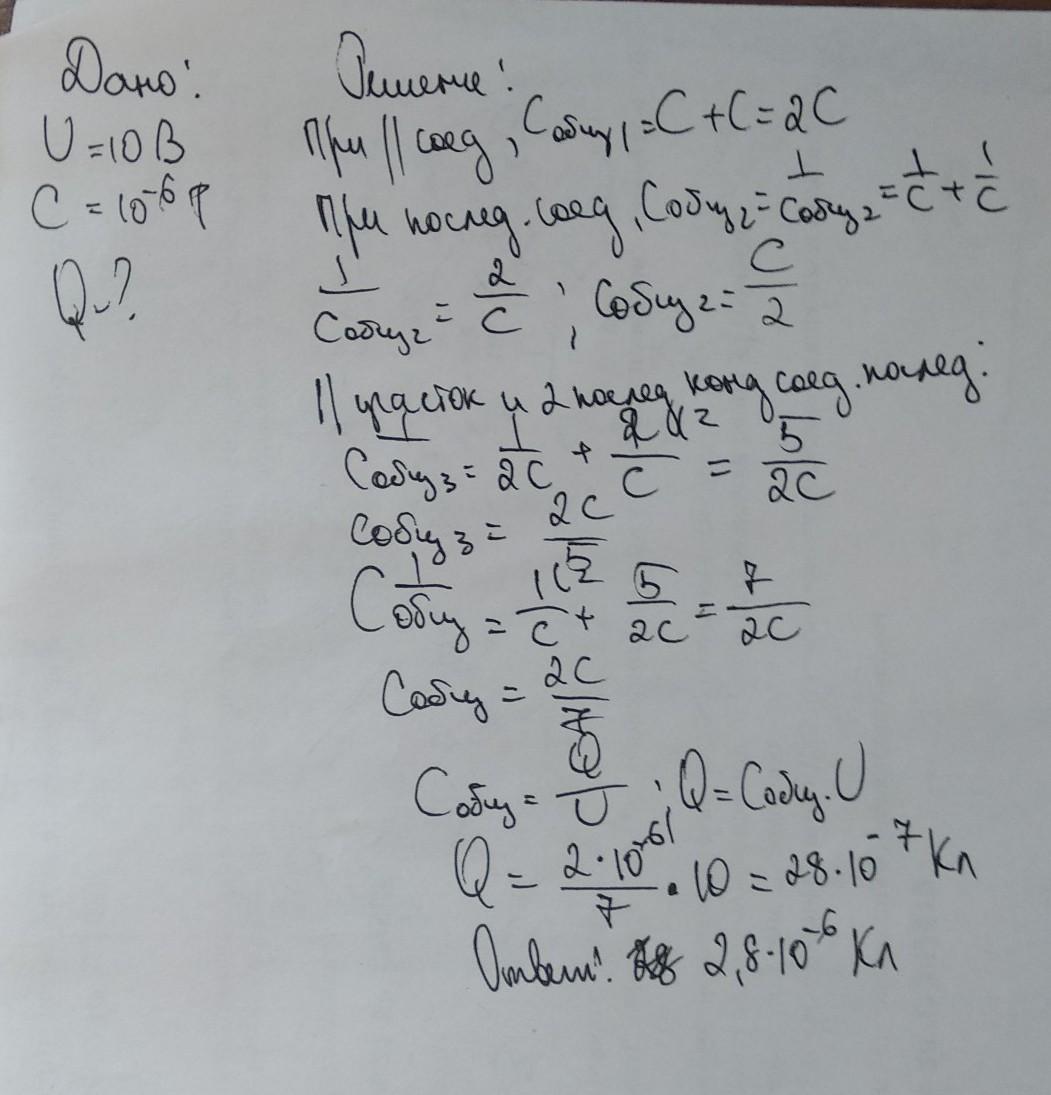 Дано:
U = 10 В
C = 10⁻⁶ Ф
Q - ?
Решение:
При || соед, Cобщ1 = C + C = 2C
При послед. соед, Cобщ2 = 1/Cобщ2 = 1/C + 1/C
1/Cобщ2 = 2/C ; Cобщ2 = C/2
|| участок и 2 послед конд соед. послед:
1/Cобщ3 = 1/2C + 2/C (2 = 5/2C
Cобщ3 = 2C/5
1/Cобщ = 1/C (2 + 5/2C = 7/2C
Cобщ = 2C/7
Cобщ = Q/U ; Q = Cобщ · U
Q = 2·10⁻⁶/7 · 10 = 28·10⁻⁷ Кл
Ответ: 2,8·10⁻⁶ Кл